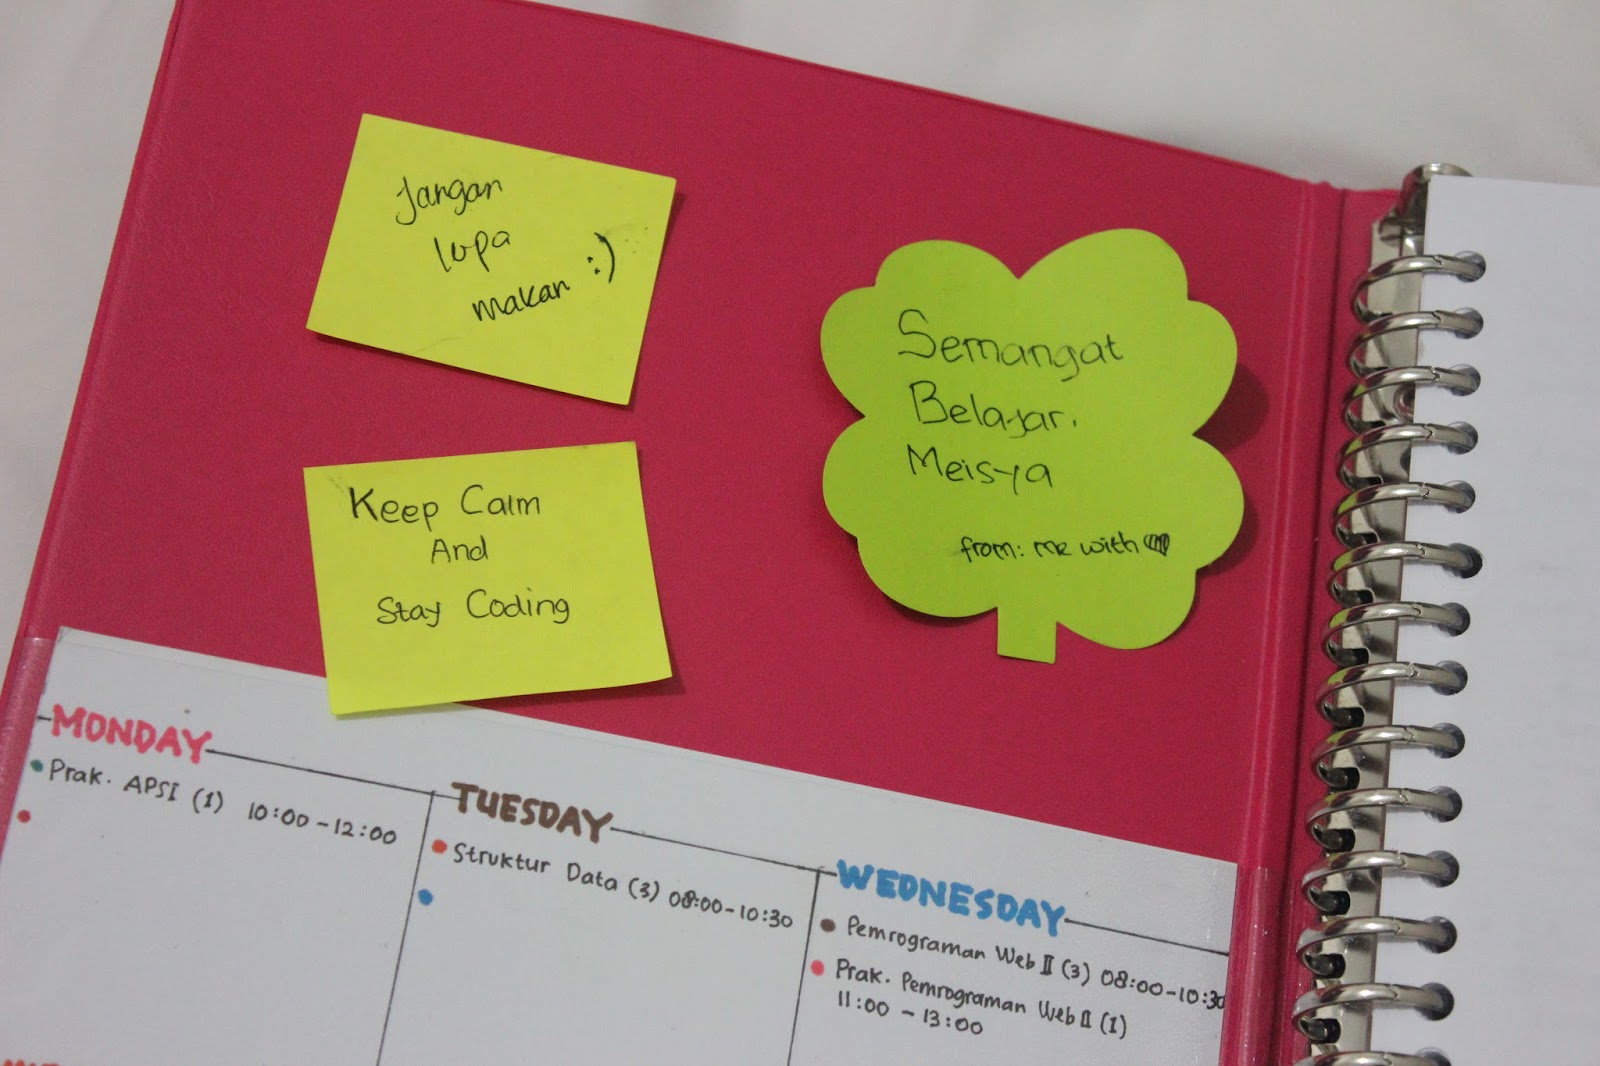 Jangan
lupa
makan :)
Keep Calm
And
Stay Coding
Semangat
Belajar.
Meisya
from: me with
MONDAY
Prak. APSI (1) 10:00-12:00
TUESDAY
Struktur Data (3) 08:00-10:30
WEDNESDAY
Pemrograman Web II (3) 08:00-10:30
Prak. Pemrograman Web II (1)
11:00 - 13:00